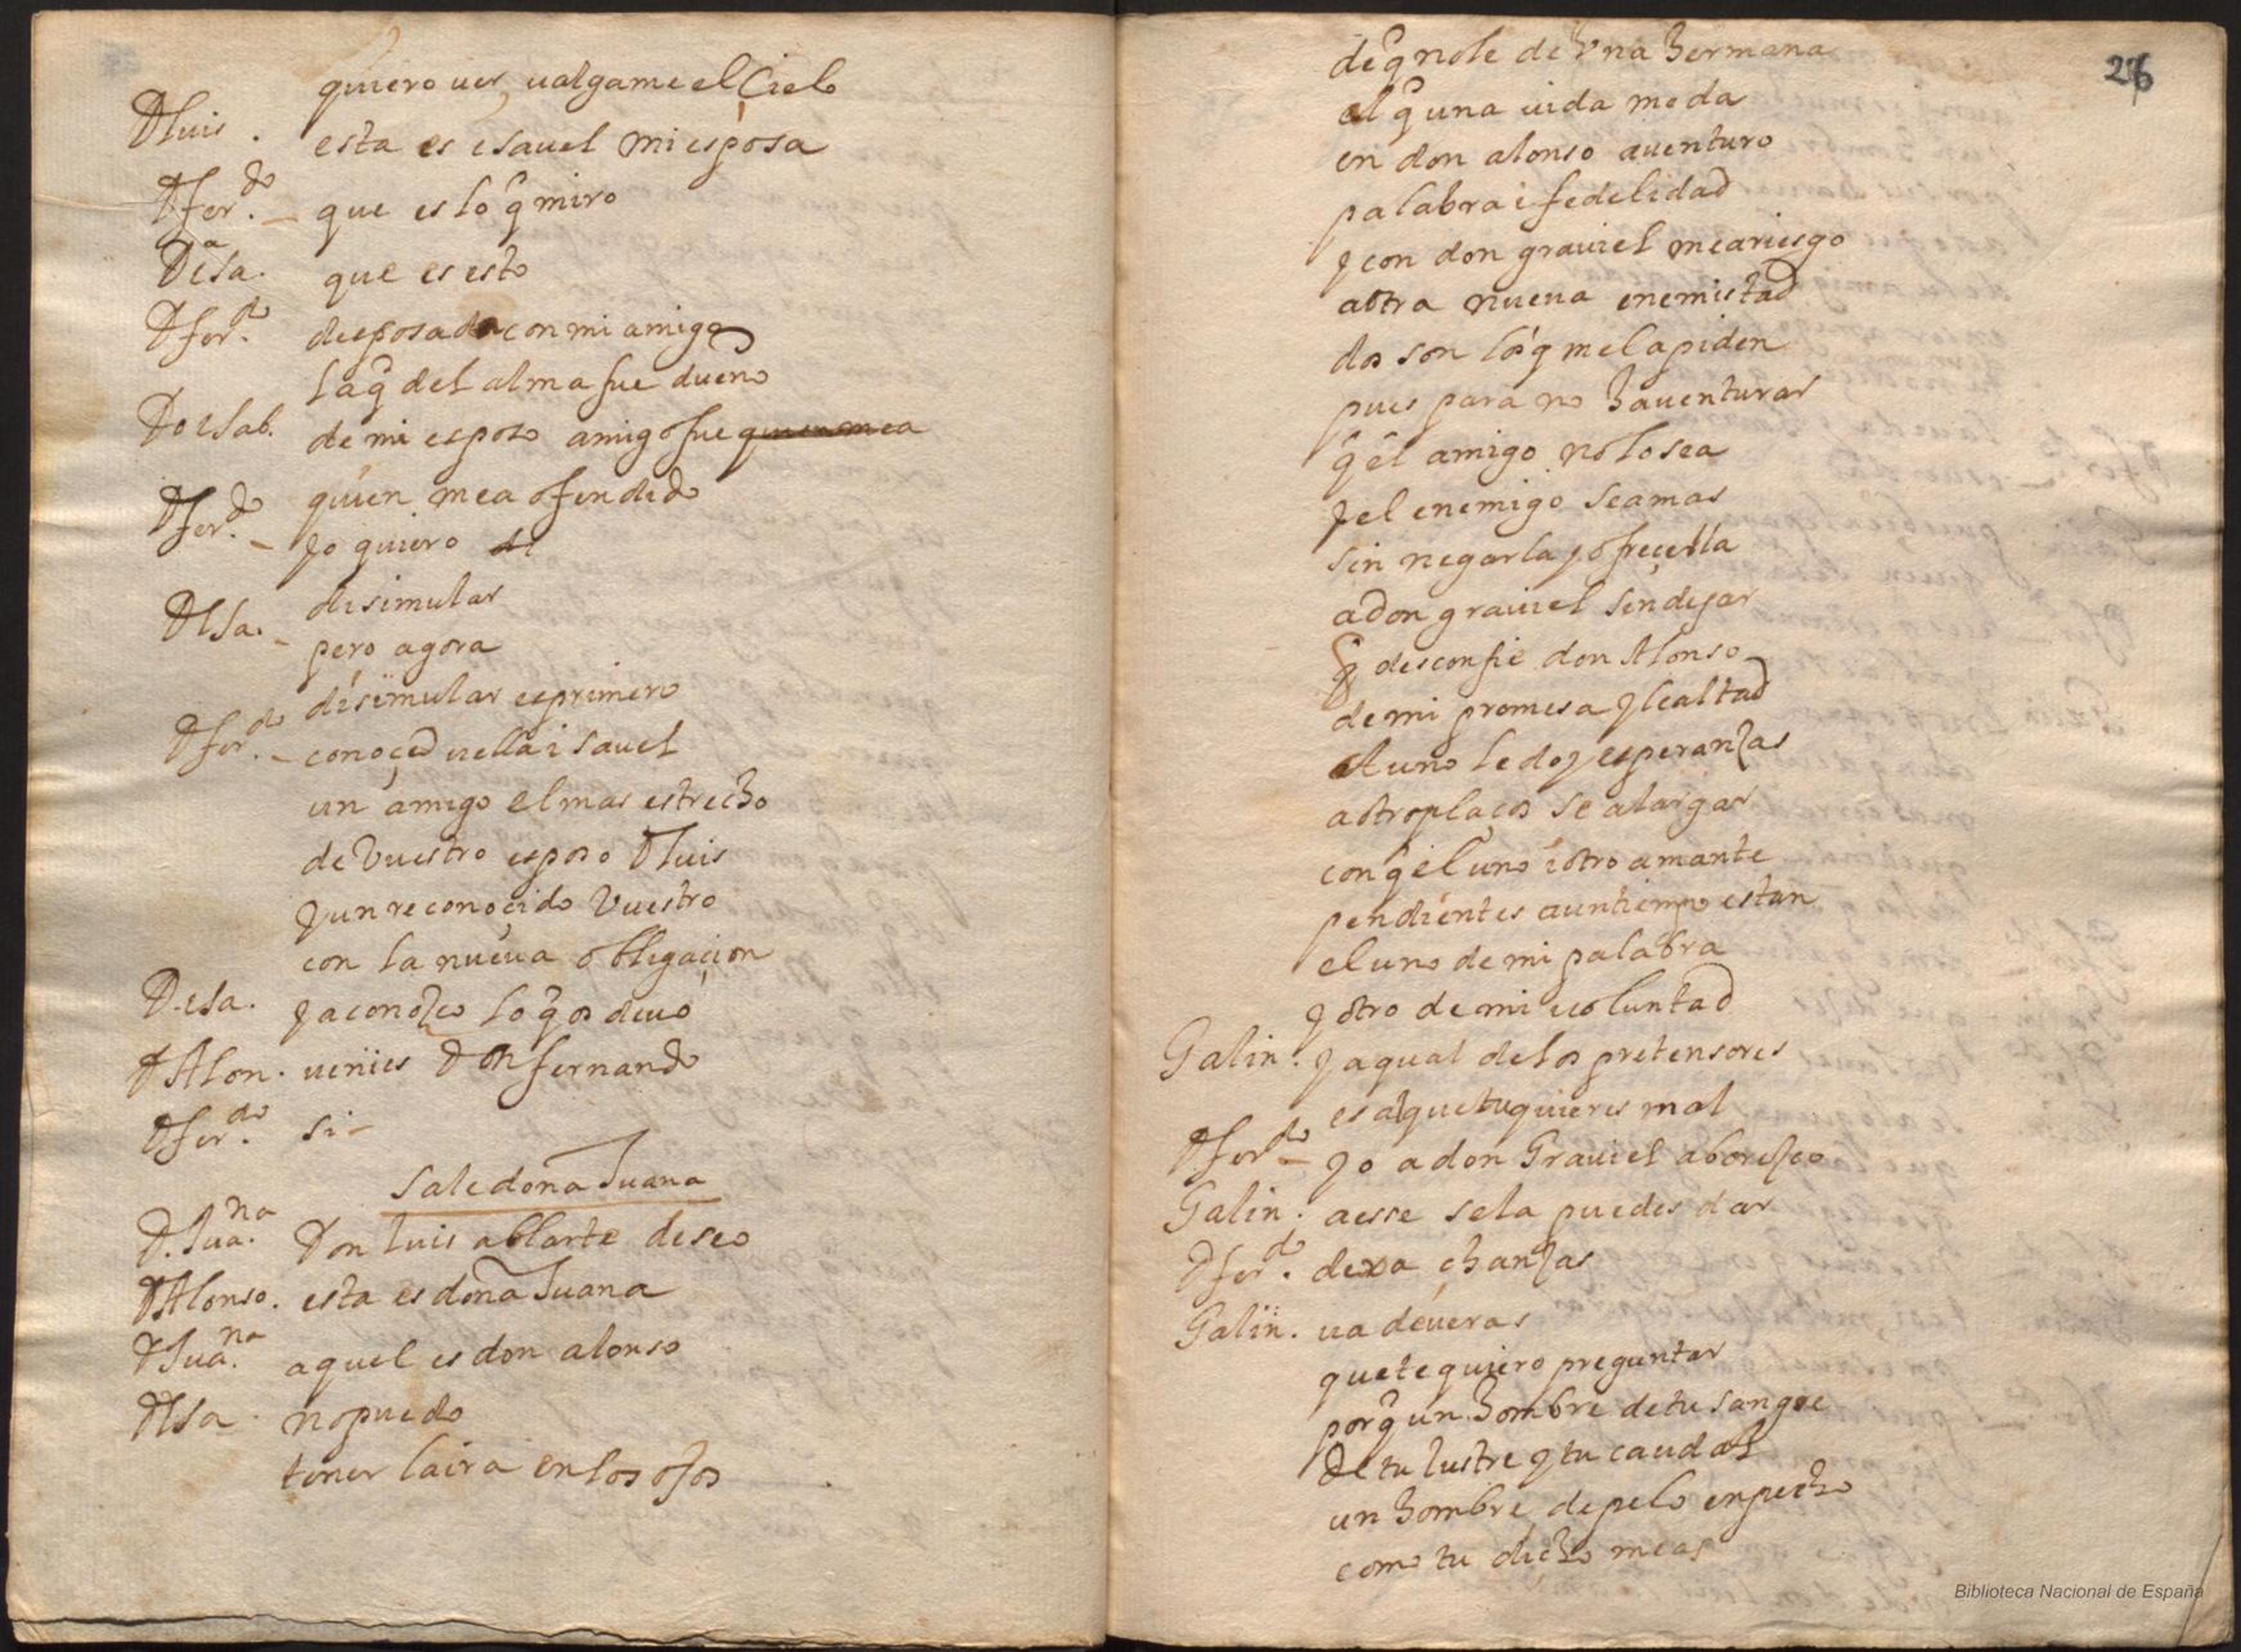 quiero uer, ualgame el Cielo
Dluis. esta es isauel mi esposa
Dfer.do – que es lo q̃ miro
Da Isa. que es esto
Dfer.do desposada con mi amigo
la q̃ del alma fue dueño
Do isab. de mi esposo amigo fue quien mea
quien mea ofendido
Dfer.do – yo quiero di
disimular
DIsa. – pero agora
disimular es primero
Dfer.do – conoçed uella isauel
un amigo el mas estrecho
de Vuestro esposo Dluis
y un reconoçido Vuestro
con la nueua obligaçion
D. isa. ya conozco lo q̃ os deuo
DAlon. uenies Don fernando
Dfer.do si –
Sale doña Juana
D. Jua.na Don luis ablarte deseo
DAlonso. esta es doña Juana
DJua.na aquel es don alonso
DIsa. no puedo
tener la ira en los ojos
26
de q̃ no le de Vna hermana
al q̃ una uida me da
en don alonso auenturo
palabra i fedelidad
y con don grauiel me ariesgo
a otra nueua enemistad
dos son los q̃ me la piden
pues para no hauenturar
q̃ el amigo no lo sea
y el enemigo sea mas
sin negarla y ofreçella
a don grauiel sin dejar
q̃ desconfie don Alonso
de mi promesa y lealtad
A uno le doy esperanzas
a otro plaços se alargar
con q̃ el uno i otro amante
pendientes a un tiempo estan
el uno de mi palabra
y otro de mi uoluntad
Galin. y a qual de los pretensores
es al que tu quieres mal
Dfer.do – yo a don Grauiel aborezco
Galin. a esse se la puedes dar
Dfer.do dexa chanzas
Galin. ua deueras
que te quiero preguntar
porq̃ un hombre de tu sangre
de tu lustre y tu caudal
un hombre de pelo en pecho
como tu dicho meas
Biblioteca Nacional de España